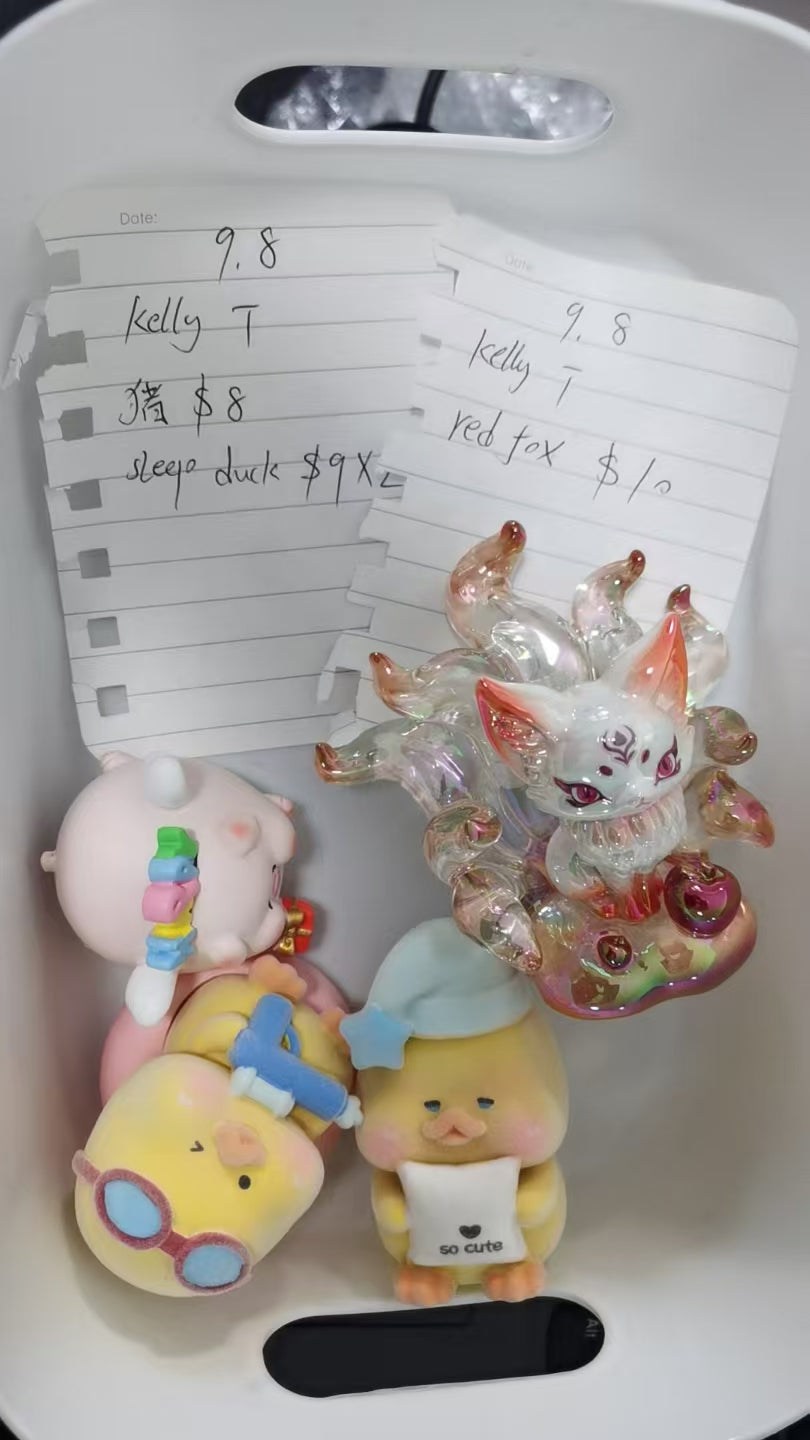 Date:
9.8
Kelly T
猪 $8
sleep duck $9 X2
Date:
9.8
Kelly T
red fox $10
so cute